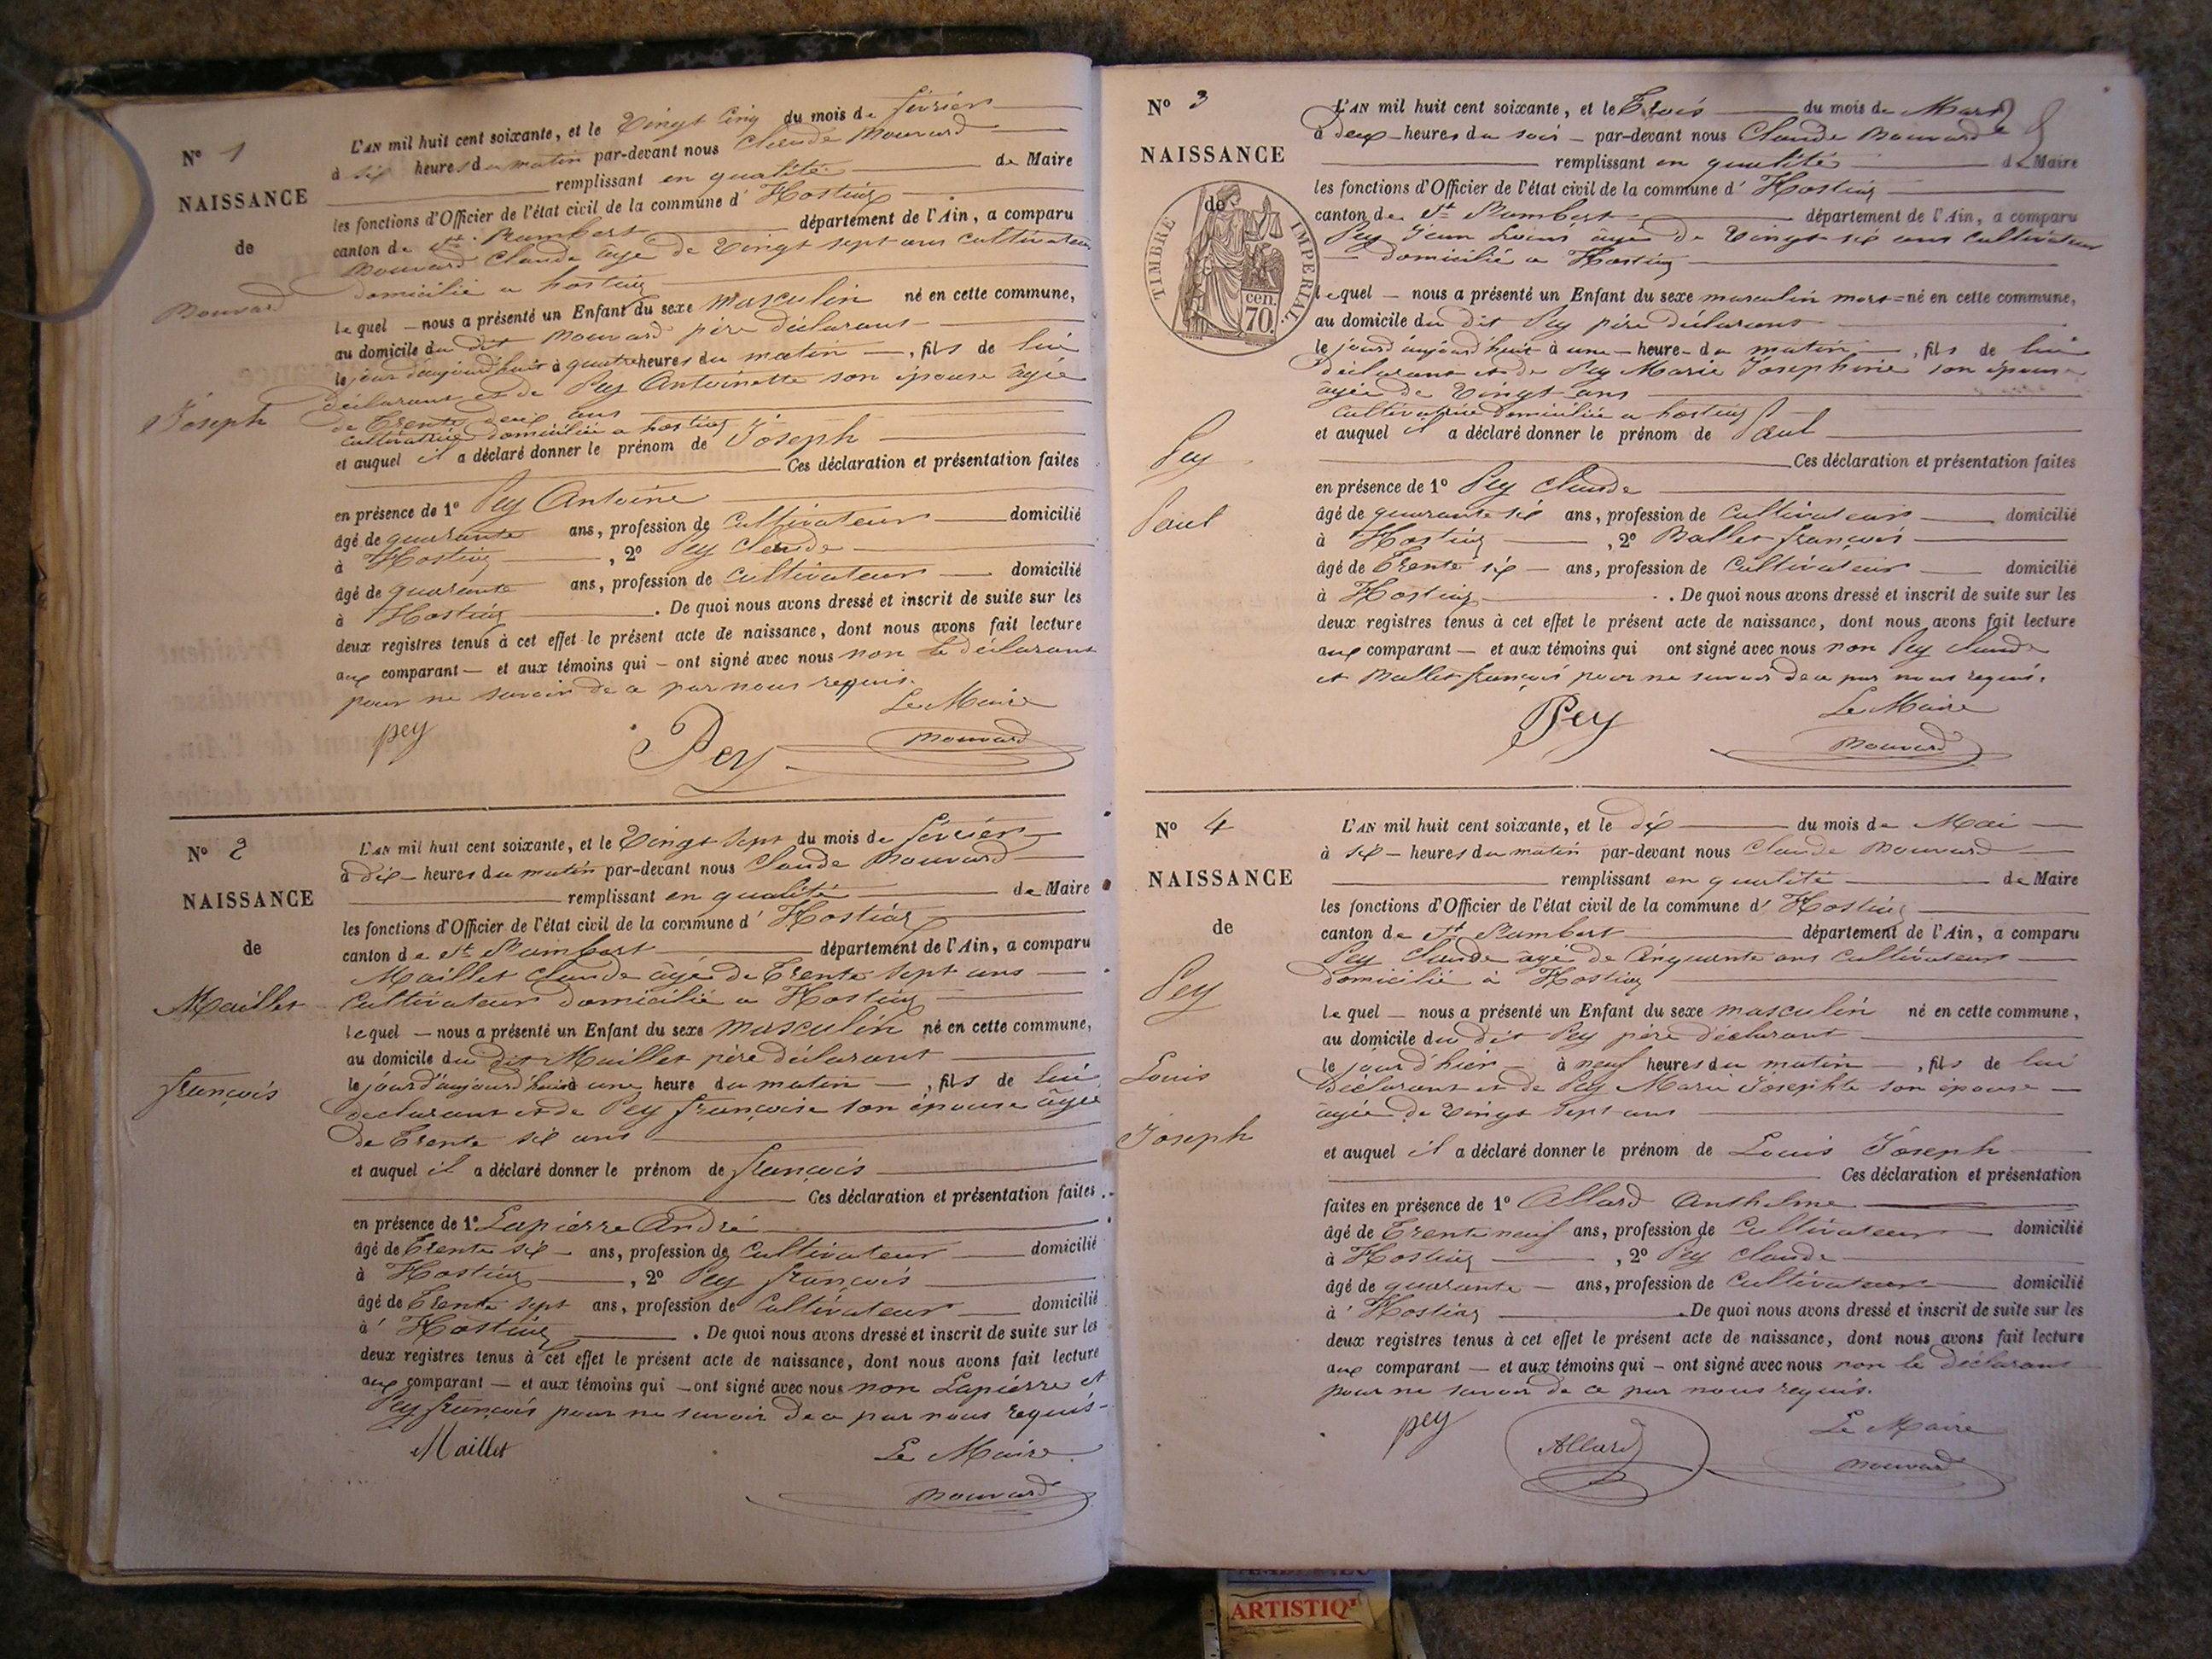 N° 1
NAISSANCE
de
Bouvard
Joseph
L'AN mil huit cent soixante, et le Vingt Cinq du mois de février
à six heures du matin par-devant nous Claude Bouvard
remplissant en qualité de Maire
les fonctions d'Officier de l'état civil de la commune d' Hostiaz
canton de St Rambert département de l'Ain, a comparu
Bouvard Claude âgé de Vingt sept ans cultivateur
domicilié a hostiaz
lequel nous a présenté un Enfant du sexe masculin né en cette commune,
au domicile du dit Bouvard père déclarant
le jour d'aujourd'huit à quatre heures du matin, fils de lui
déclarant et de Pey Antoinette son épouse âgée
de Trente deux ans
cultivatrice domiciliée a hostiaz
et auquel il a déclaré donner le prénom de Joseph
Ces déclaration et présentation faites
en présence de 1° Pey Antoine
âgé de quarante ans, profession de Cultivateur domicilié
à Hostiaz, 2° Pey Claude
âgé de quarante ans, profession de Cultivateur domicilié
à Hostiaz. De quoi nous avons dressé et inscrit de suite sur les
deux registres tenus à cet effet le présent acte de naissance, dont nous avons fait lecture
aux comparant et aux témoins qui ont signé avec nous non le déclarant
pour ne savoir de ce par nous requis.
Le Maire
pey Pey Bouvard
N° 2
NAISSANCE
de
Maillet
françois
L'AN mil huit cent soixante, et le Vingt Sept du mois de février
à dix heures du matin par-devant nous Claude Bouvard
remplissant en qualité de Maire
les fonctions d'Officier de l'état civil de la commune d' Hostiaz
canton de St Rambert département de l'Ain, a comparu
Maillet Claude âgé de Trente Sept ans
Cultivateur domicilié a Hostiaz
lequel nous a présenté un Enfant du sexe masculin né en cette commune,
au domicile du dit Maillet père déclarant
le jour d'aujourd'huit à une heure du matin, fils de lui
déclarant et de Pey françoise son épouse âgée
de Trente six ans
et auquel il a déclaré donner le prénom de françois
Ces déclaration et présentation faites
en présence de 1° Lapierre André
âgé de Trente six ans, profession de Cultivateur domicilié
à Hostiaz, 2° Pey françois
âgé de Trente sept ans, profession de Cultivateur domicilié
à Hostiaz. De quoi nous avons dressé et inscrit de suite sur les
deux registres tenus à cet effet le présent acte de naissance, dont nous avons fait lecture
aux comparant et aux témoins qui ont signé avec nous non Lapierre et
Pey françois pour ne savoir de ce par nous requis
Maillet Le Maire
Bouvard
N° 3
NAISSANCE
de
TIMBRE IMPERIAL
cen.
70.
Pey
Paul
L'AN mil huit cent soixante, et le Trois du mois de Mars
à deux heures du soir par-devant nous Claude Bouvard
remplissant en qualité de Maire
les fonctions d'Officier de l'état civil de la commune d' Hostiaz
canton de St Rambert département de l'Ain, a comparu
Pey Jean Louis âgé de Vingt six ans Cultivateur
domicilié a Hostiaz
lequel nous a présenté un Enfant du sexe masculin mort=né en cette commune,
au domicile du dit Pey père déclarant
le jour d'aujourd'huit à une heure du matin, fils de lui
déclarant et de Pey Marie Josephine son épouse
âgée de Vingt ans
Cultivatrice domiciliée a hostiaz
et auquel il a déclaré donner le prénom de Paul
Ces déclaration et présentation faites
en présence de 1° Pey Claude
âgé de quarante six ans, profession de Cultivateur domicilié
à Hostiaz, 2° Ballet françois
âgé de Trente six ans, profession de Cultivateur domicilié
à Hostiaz. De quoi nous avons dressé et inscrit de suite sur les
deux registres tenus à cet effet le présent acte de naissance, dont nous avons fait lecture
aux comparant et aux témoins qui ont signé avec nous non Pey Claude
et Ballet françois pour ne savoir de ce par nous requis.
Le Maire
Pey Bouvard
N° 4
NAISSANCE
de
Pey
Louis
Joseph
L'AN mil huit cent soixante, et le dix du mois de Mai
à six heures du matin par-devant nous Claude Bouvard
remplissant en qualité de Maire
les fonctions d'Officier de l'état civil de la commune d' Hostiaz
canton de St Rambert département de l'Ain, a comparu
Pey Claude âgé de Cinquante ans Cultivateur
domicilié à Hostiaz
lequel nous a présenté un Enfant du sexe masculin né en cette commune,
au domicile du dit Pey père déclarant
le jour d'hier à neuf heures du matin, fils de lui
déclarant et de Pey Marie Josephte son épouse
âgée de Vingt Sept ans
et auquel il a déclaré donner le prénom de Louis Joseph
Ces déclaration et présentation
faites en présence de 1° Allard Anthelme
âgé de Trente neuf ans, profession de Cultivateur domicilié
à Hostiaz, 2° Pey Claude
âgé de quarante ans, profession de Cultivateur domicilié
à Hostiaz. De quoi nous avons dressé et inscrit de suite sur les
deux registres tenus à cet effet le présent acte de naissance, dont nous avons fait lecture
aux comparant et aux témoins qui ont signé avec nous non le déclarant
pour ne savoir de ce par nous requis.
pey Allard Le Maire
Bouvard
ARTISTIQ